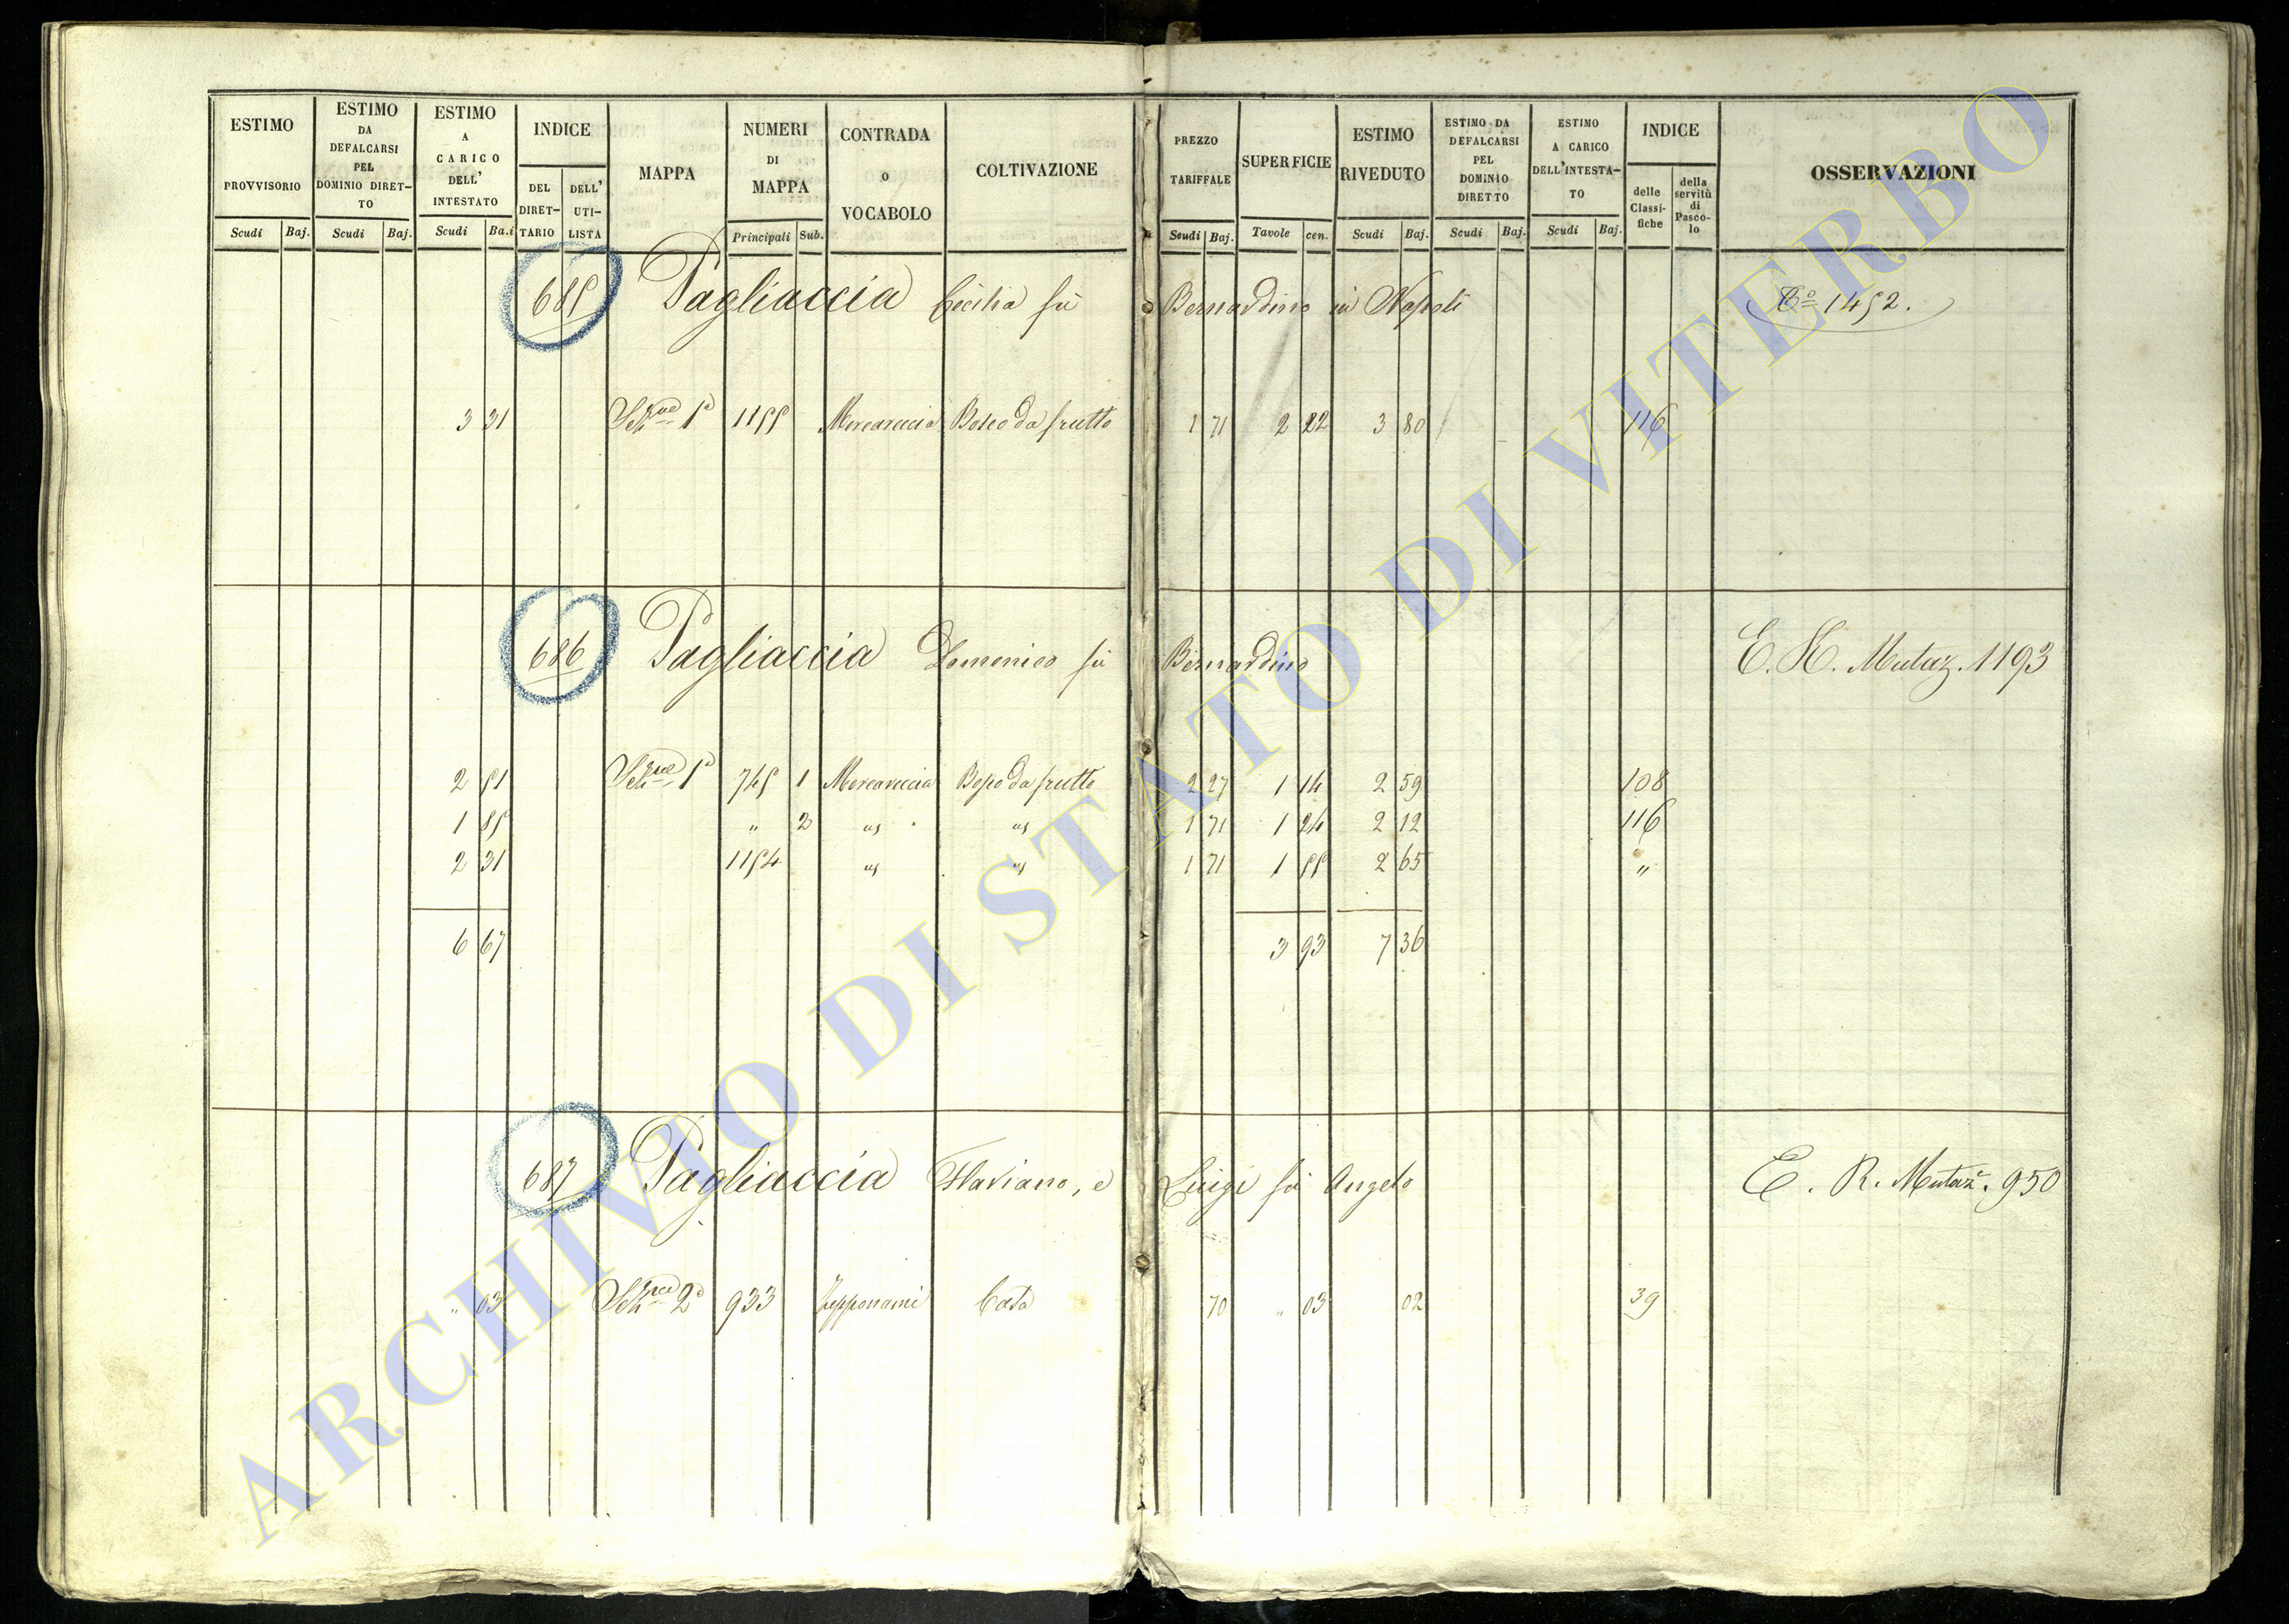 ESTIMO PROVVISORIO Scudi Baj.
ESTIMO DA DEFALCARSI PEL DOMINIO DIRET-TO Scudi Baj.
ESTIMO A CARICO DELL' INTESTATO Scudi Ba.i
INDICE DEL DIRET-TARIO DELL' UTI-LISTA
MAPPA
NUMERI DI MAPPA Principali Sub.
CONTRADA o VOCABOLO
COLTIVAZIONE
PREZZO TARIFFALE Scudi Baj.
SUPERFICIE Tavole cen.
ESTIMO RIVEDUTO Scudi Baj.
ESTIMO DA DEFALCARSI PEL DOMINIO DIRETTO Scudi Baj.
ESTIMO A CARICO DELL'INTESTA-TO Scudi Baj.
INDICE delle Classi-fiche della servitù di Pasco-lo
OSSERVAZIONI
685 Pagliaccia Cecilia fù Bernardino in Napoli 1452.
3 31 Sez.ne 1ª 1155 Mercareccia Bosco da frutto 1 71 2 22 3 80 116
686 Pagliaccia Domenico fù Bernardino E. H. Mutaz. 1193
2 51 Sez.ne 1ª 745 1 Mercareccia Bosco da frutto 2 27 1 14 2 59 108
1 85 " 2 us us 1 71 1 24 2 12 116
2 31 1154 us us 1 71 1 55 2 65 "
6 67 3 93 7 36
687 Pagliaccia Flaviano, e Luigi fù Angelo E. R. Mutaz. 950
" 03 Sez.ne 2ª 933 Zepponami Casa 70 " 03 02 39
ARCHIVIO DI STATO DI VITERBO